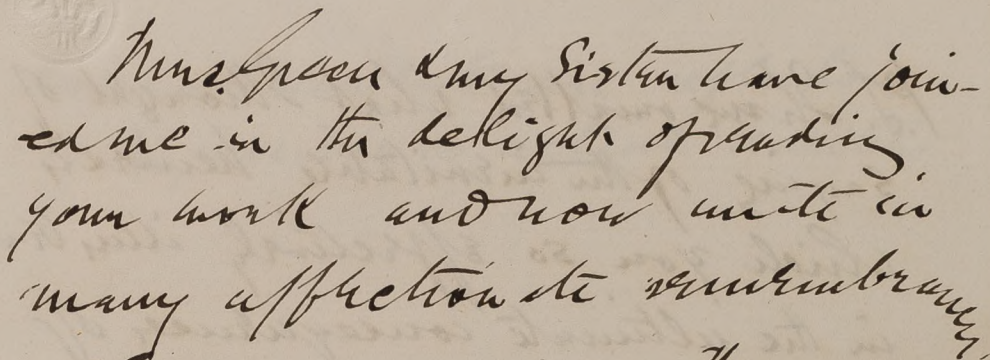 Mrs. Green & my Sister have join-
ed me in the delight of reading
your work and now unite in
many affectionate remembrances